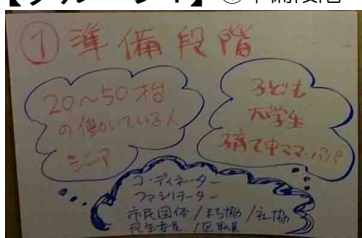 ① 準備段階
20～50才台
の働いている人
シニア
子ども
大学生
子育て中ママ・パパ
コーディネーター
ファシリテーター
市民団体/まち協/社協
民生委員/区職員